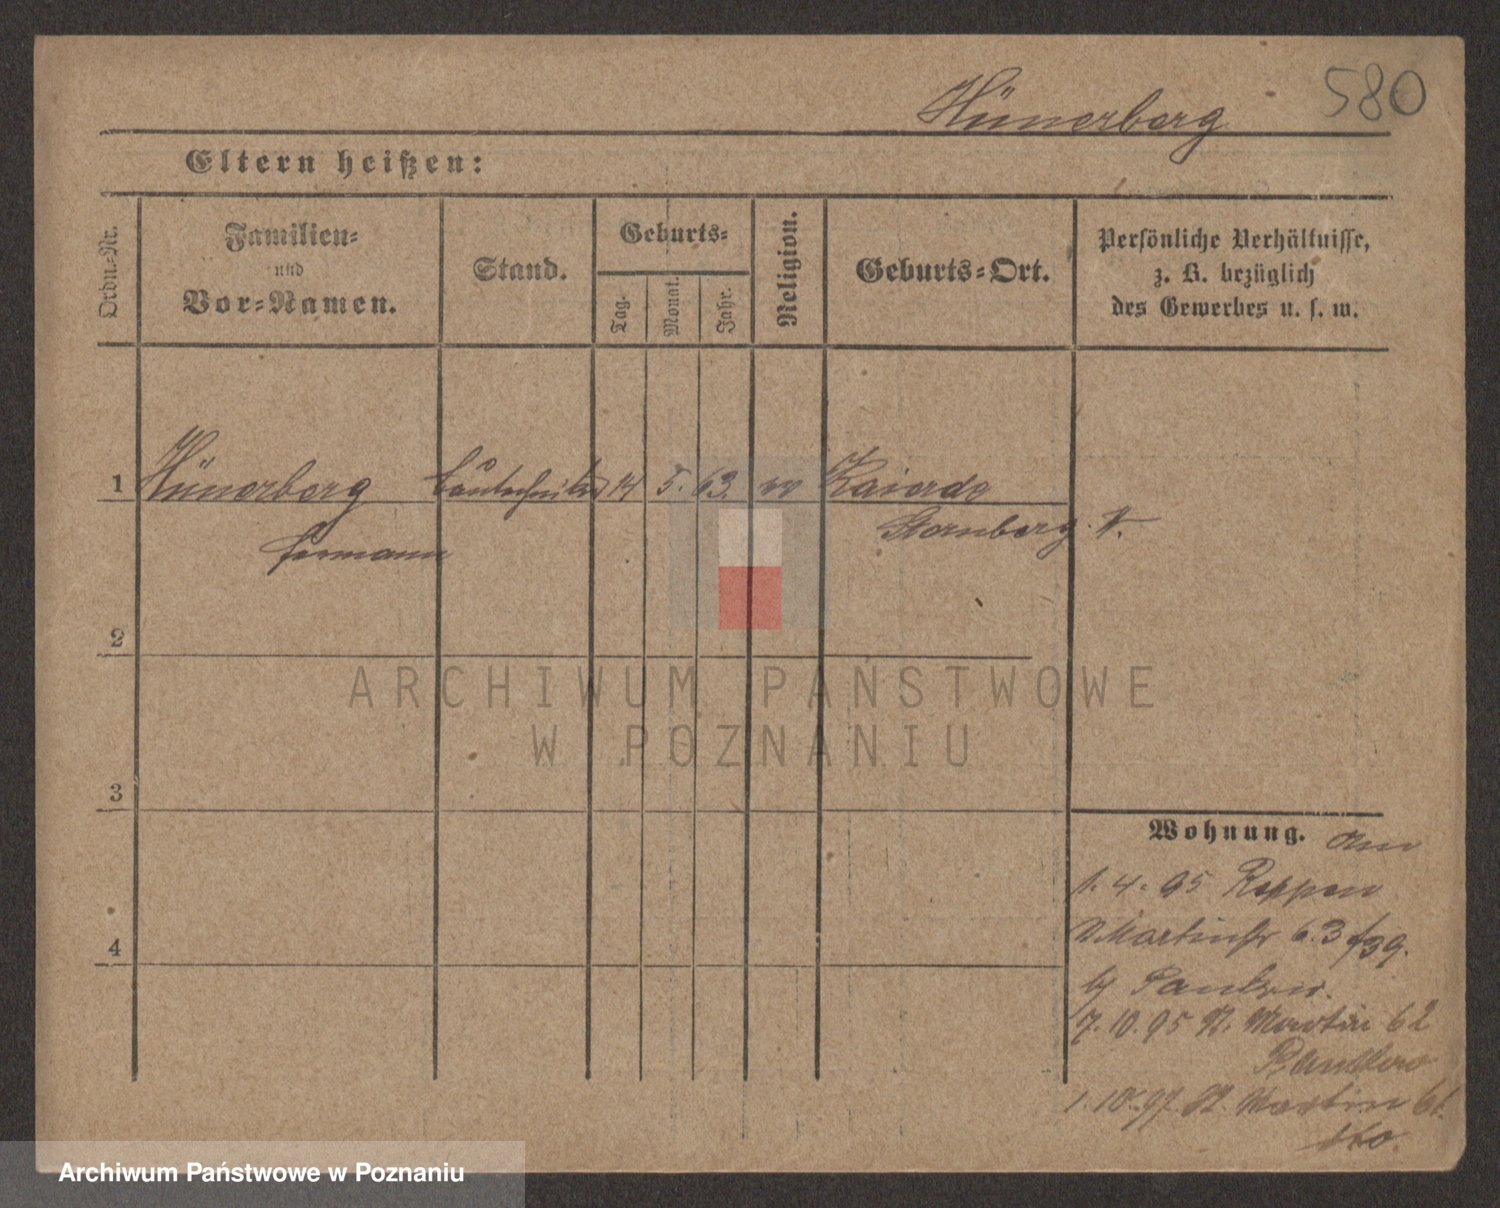 580
Hünerberg
Eltern heißen:
Ordn.-Nr.
Familien-
und
Vor-Namen.
Stand.
Geburts-
Tag.
Monat.
Jahr.
Religion.
Geburts-Ort.
Persönliche Verhältnisse,
z. B. bezüglich
des Gewerbes u. s. w.
1 Hünerberg 14 5. 63. ev
Hermann Sternberg
2
ARCHIWUM PAŃSTWOWE
W POZNANIU
3
Wohnung.
1. 4. 95 Reppen
Martinstr
4
7. 10. 95 St. Martin 62
1. 10. 97. St. Martin
Archiwum Państwowe w Poznaniu